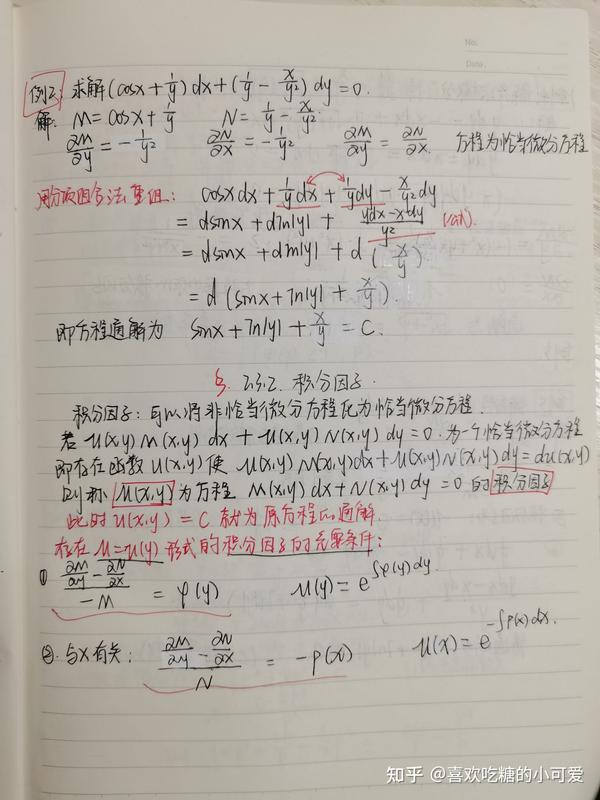 No.
Date.
例2: 求解(cosx+1/y)dx+(1/y-x/y²)dy=0.
解: M=cosx+1/y N=1/y-x/y².
∂M/∂y=-1/y² ∂N/∂x=-1/y². ∂M/∂y=∂N/∂x. 方程为恰当微分方程
用分项组合法重组: cosxdx+1/ydx+1/ydy-x/y²dy
=dsinx+dln|y|+(ydx-xdy)/y²
=dsinx+dln|y|+d(x/y)
=d(sinx+ln|y|+x/y).
即方程通解为 sinx+ln|y|+x/y=C.
§. 2.3.2. 积分因子.
积分因子: 可以将非恰当微分方程化为恰当微分方程.
若 μ(x,y)M(x,y)dx+μ(x,y)N(x,y)dy=0.为一个恰当微分方程
即存在函数U(x,y)使 μ(x,y)M(x,y)dx+μ(x,y)N(x,y)dy=du(x,y)
则称 μ(x,y) 为方程 M(x,y)dx+N(x,y)dy=0 的积分因子
此时 u(x,y)=C 就为原方程的通解.
存在 μ=μ(y) 形式的积分因子的充要条件:
① (∂M/∂y-∂N/∂x)/-M=φ(y) μ(y)=e^∫φ(y)dy.
②. 与x有关: (∂M/∂y-∂N/∂x)/N=-p(x) μ(x)=e^-∫p(x)dx.
知乎 @喜欢吃糖的小可爱